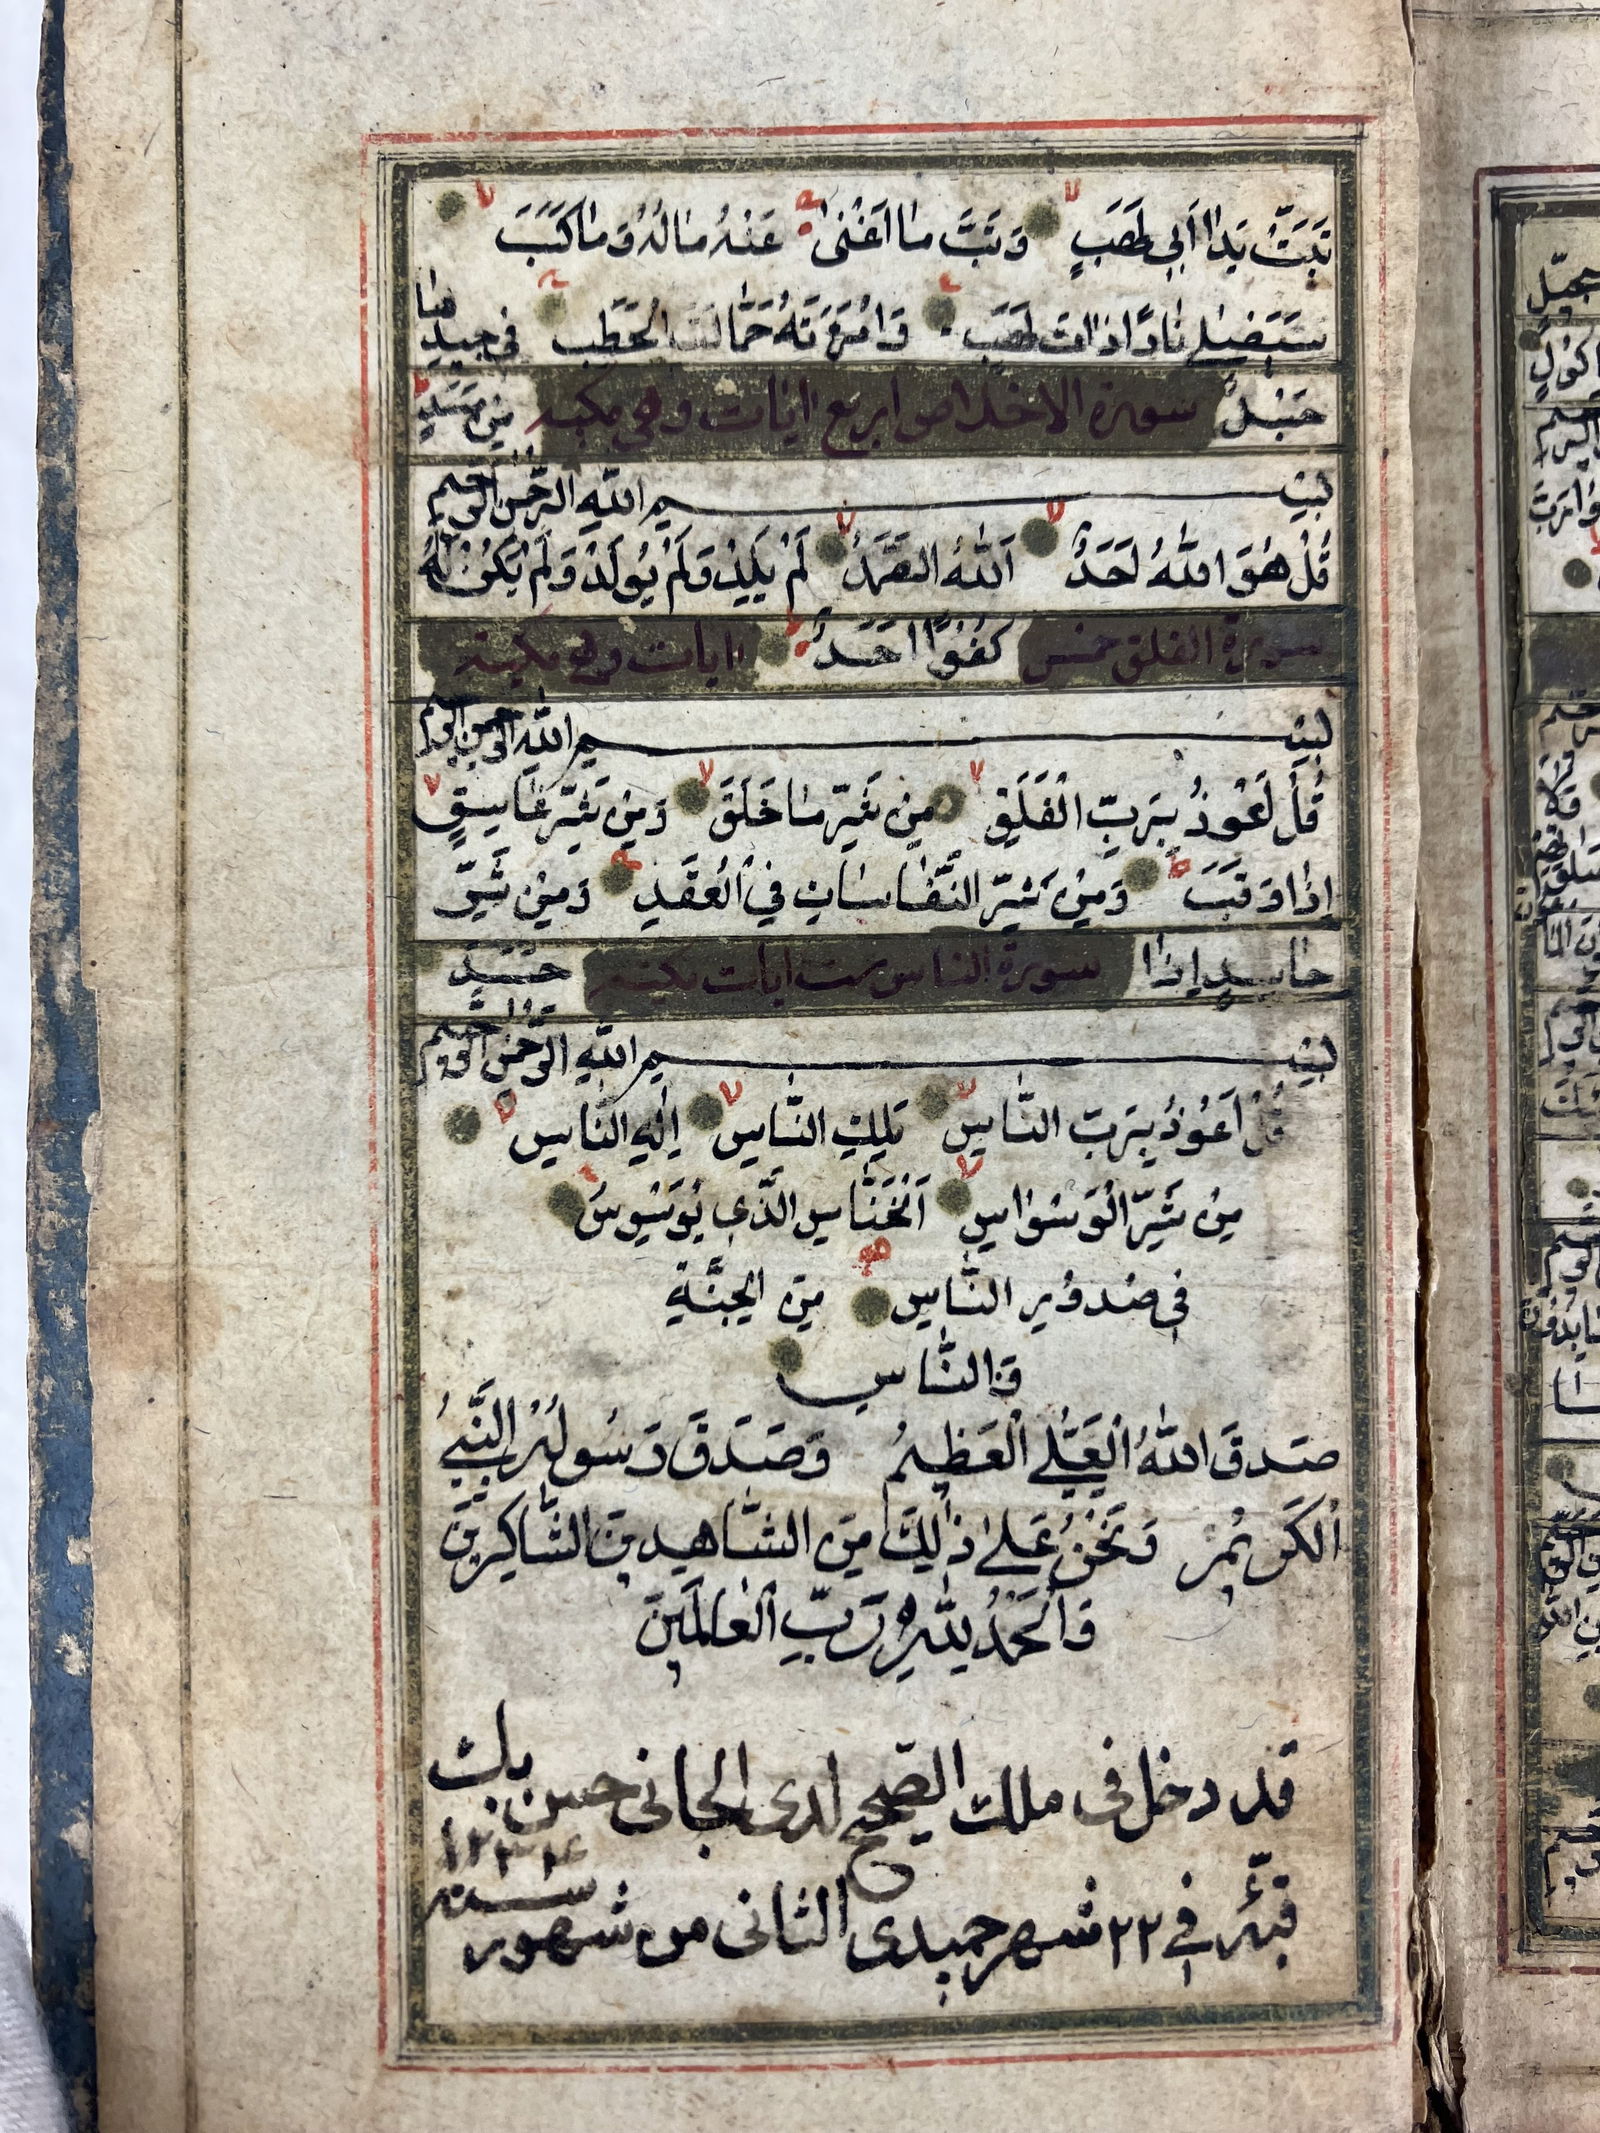 تَبَّتْ يَدٰا اَبِى لَهَبٍ وَتَبَّ مٰا اَغْنٰى عَنْهُ مٰالُهُ وَمٰا كَسَبَ
سَيَصْلٰى نٰارًا ذٰاتَ لَهَبٍ وَامْرَءَتُهُ حَمّٰالَتَ الْحَطَبِ فى جيدِهٰا
حَبْلٌ سورة الاخلاص اربع ايات وهى مكيه مِنْ مَسَدٍ
بِسْمِ اللهِ الرَّحْمنِ الرَّحيمِ
قُلْ هُوَ اللهُ اَحَدٌ اَللهُ الصَّمَدُ لَمْ يَلِدْ وَلَمْ يُولَدْ وَلَمْ يَكُنْ لَهُ
سورة الفلق خمس كُفُوًا اَحَدٌ ايات وهى مكية
بِسْمِ اللهِ الرحمن الرحيم
قُلْ اَعُوذُ بِرَبِّ الْفَلَقِ مِنْ شَرِّ مٰا خَلَقَ وَمِنْ شَرِّ غٰاسِقٍ
اِذٰا وَقَبَ وَمِنْ شَرِّ النَّفّٰاثٰاتِ فِى الْعُقَدِ وَمِنْ شَرِّ
حٰاسِدٍ اِذٰا سورة الناس ست ايات مكيه حَسَدَ
بِسْمِ اللهِ الرَّحْمنِ الرَّحيم
قُلْ اَعُوذُ بِرَبِّ النّٰاسِ مَلِكِ النّٰاسِ اِلٰهِ النّٰاسِ
مِنْ شَرِّ الْوَسْوٰاسِ اَلْخَنّٰاسِ الَّذِى يُوَسْوِسُ
فى صُدُورِ النّٰاسِ مِنَ الْجِنَّةِ
وَالنّٰاسِ
صَدَقَ اللهُ الْعَلِىُّ الْعَظِيمُ وَصَدَقَ رَسُولُهُ النَّبِىُّ
الْكَرِيمُ وَنَحْنُ عَلىٰ ذٰلِكَ مِنَ الشّٰاهِدينَ الشّٰاكِرِينَ
وَالْحَمْدُ لِلّٰهِ رَبِّ الْعٰالَمِينَ
قد دخل فى ملك الصحيح لدى الجانى حسن بك
فى ٢٢ شهر جميدى الثانى من شهور سنه ١٢٣٤